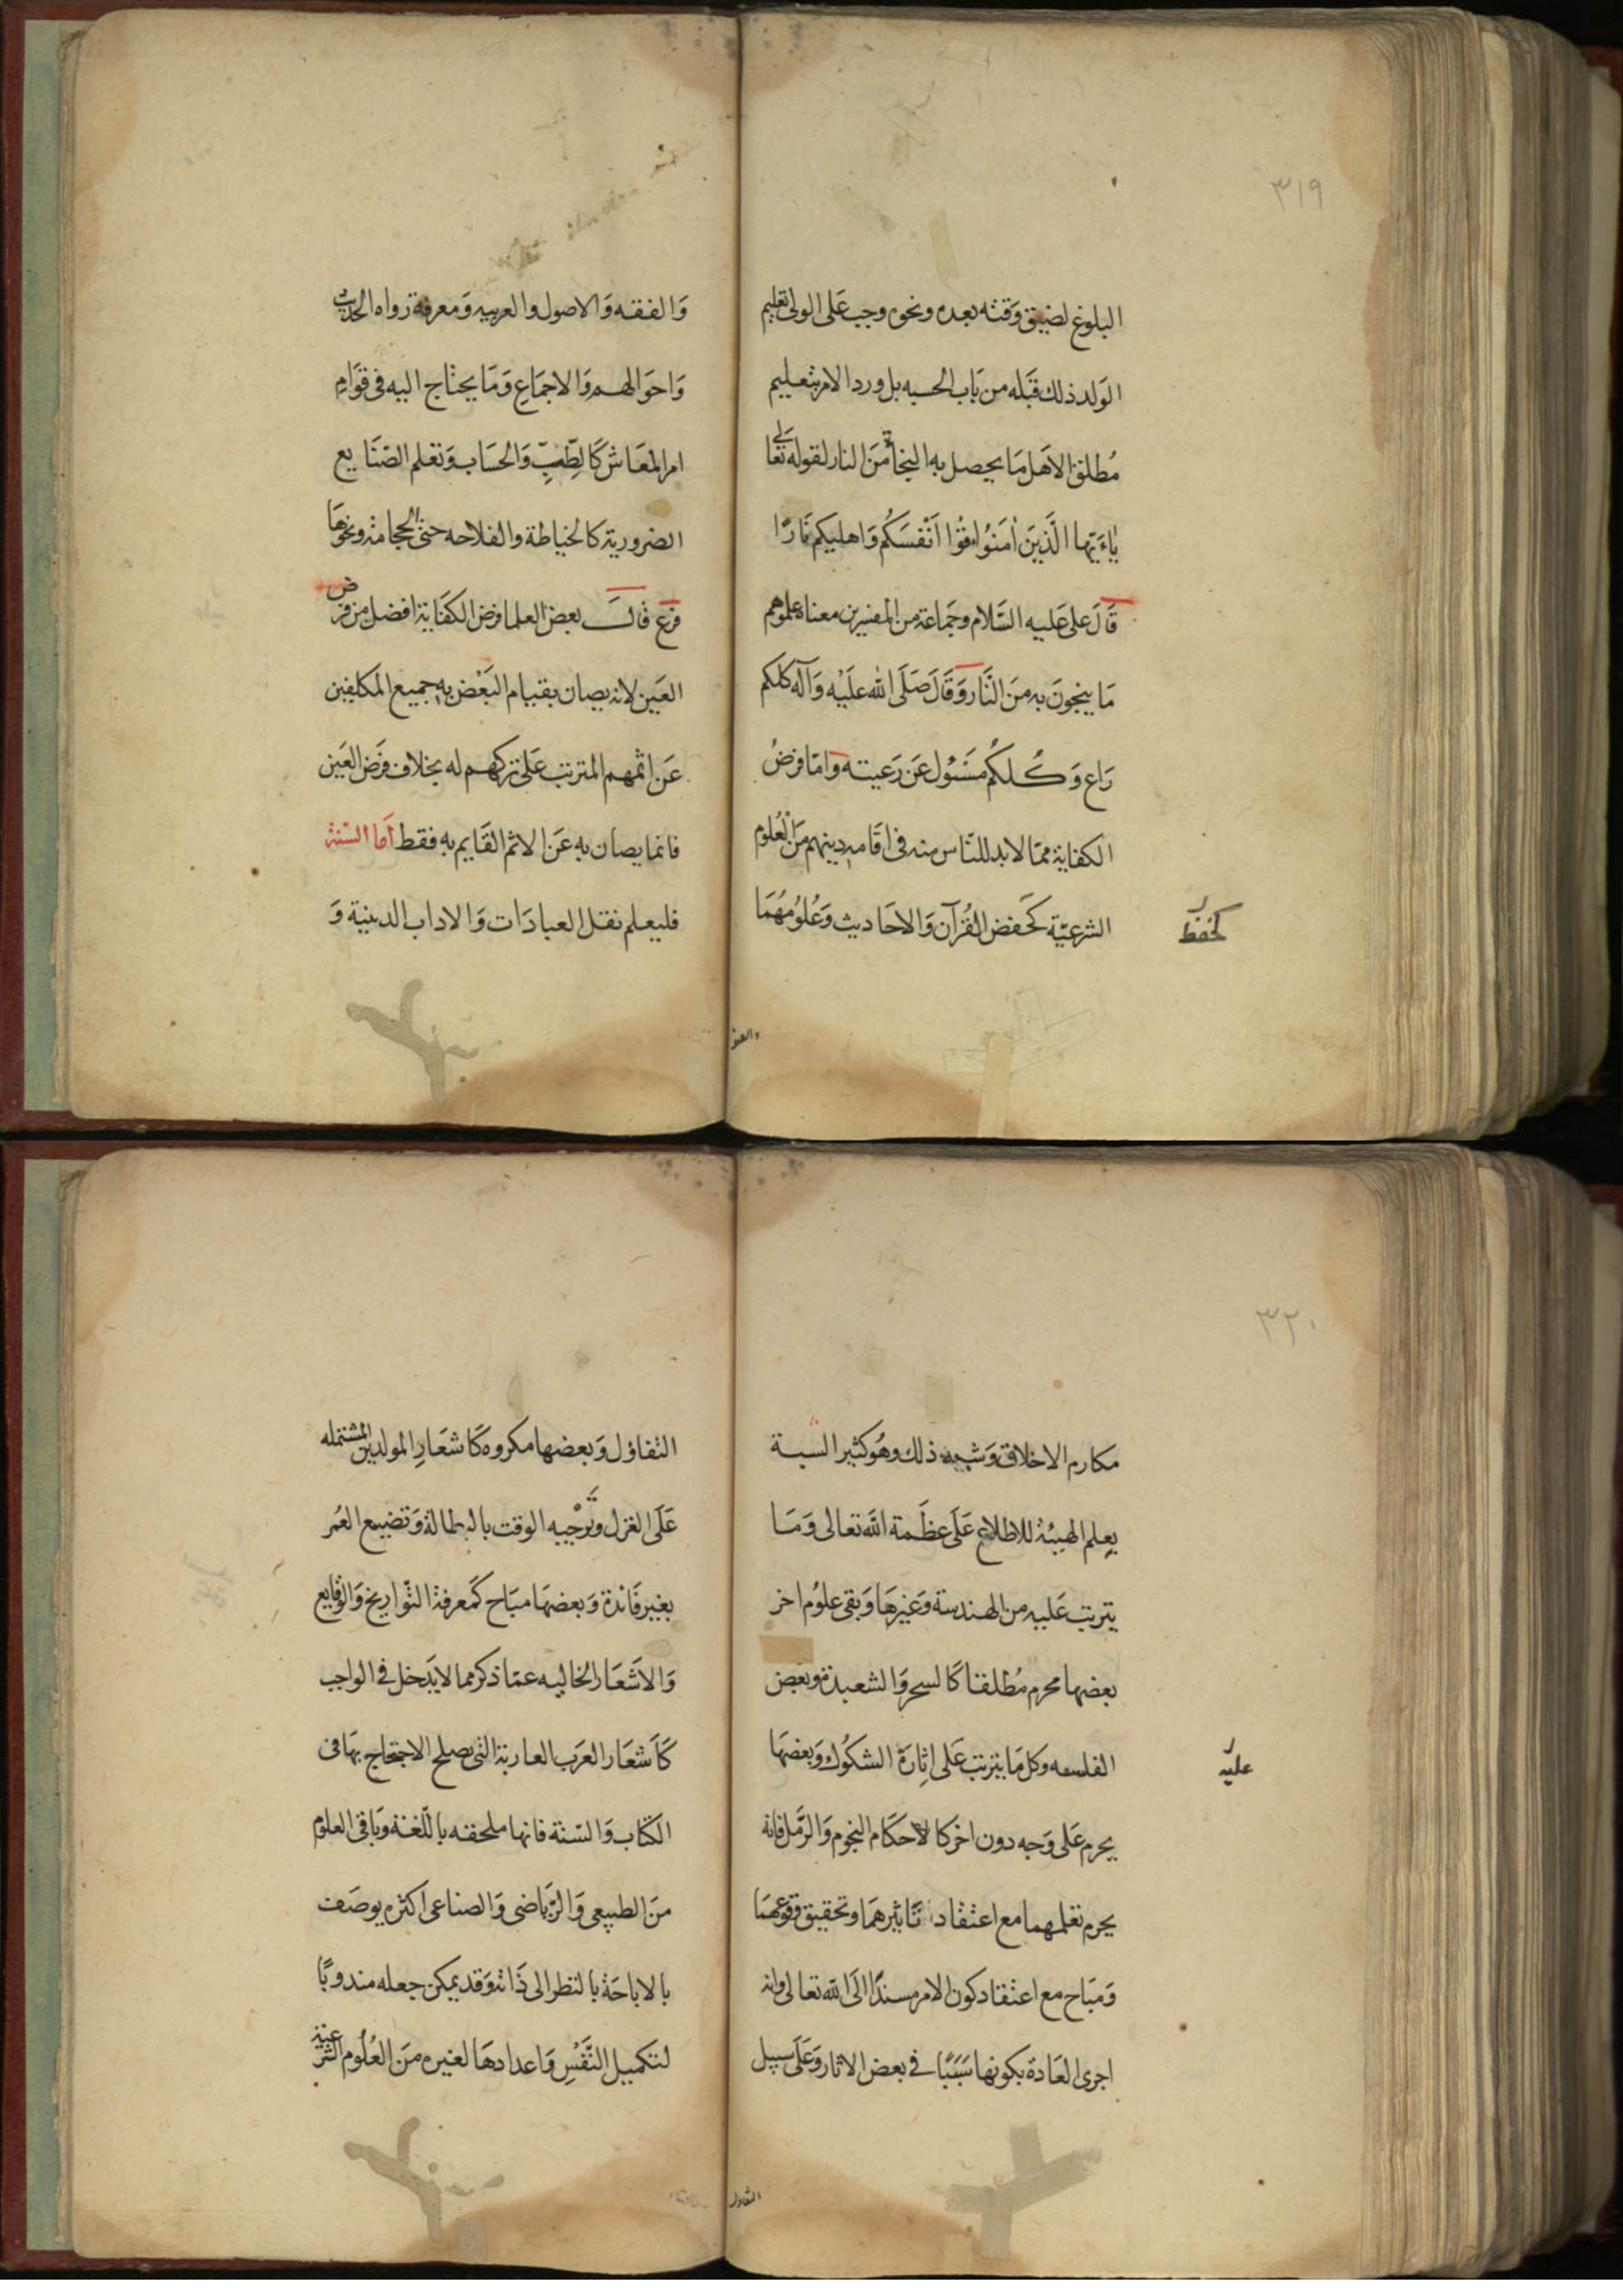 ٣١٩
البلوغ لضيق وقته بعده ونحوه وجب على الولي تعليم
الوَلد ذلك قبَله من بَاب الحسبه بل ورد الامر بتعليم
مُطلق الاهل مَا يحصل به النجاة منَ النار لقوله تعَالى
يٰاءَيّها الَّذينَ اٰمَنُوا قُوٓا اَنْفسَكُم وَاهليكم نَارًا
قَالَ على عَليه السَّلام وجَماعة من المفسرين معناه علموهم
مَا ينجونَ به منَ النَّار وَقَالَ صَلَى الله علَيْه وَآله كلكم
رَاع وَكُلكُم مسَئول عَن رَعيته وامّا فرضُ
الكفاية ممّا لابد للنّاس منه فى اقَامه دينهم مَن العُلوم
الشرعيّة كحَفض القُرآن وَالاحَاديث وَعُلوُمهُمَا
كحفظ
والفقه
وَالفقه وَالاصول والعربيه وَمعرفة رواه الحديث
وَاحوَالهم وَالاجمَاع وَمَا يحتاج اليه فى قوَام
امر المعَاش كَالطِّبِّ وَالحسَاب وَتعلم الصّنَايع
الضرورية كالخياطة والفلاحه حتى الحجامة ونحوهَا
فرع قالَ بعض العلما فرض الكفَاية افضل من فرض
العَين لانه يصان بقيام البَعْض به جميع المكلفين
عَن اثمهم المترتب عَلى تركهم له بخلاف فرَض العَين
فانما يصان به عَن الاثم القَايم به فقط اَما السّنة
فليعلم نقل العبادَات وَالاداب الدينية وَ
٣٢٠
مكارم الاخلاق وَشبه ذلك وهُو كثير السبة
يعلم الهيئة للاطلاع عَلَى عظَمة الله تعالى وَمَا
يترتب عَليه من الهندسة وَغيرهَا وَبقى علوُم اخر
بعضها محرم مُطلقا كَالسحر وَالشعبذة وبعض
الفلسفه وكل مَا يترتب عَلى اثارَة الشكوُك وَبعضهَا
عليه
يحرم عَلى وَجه دون اخر كالاحكَام النجوم وَالرَّمل فانه
يحرم تعلمهما مع اعتقاد تَاثيرهمَا وتحقيق وقوعهمَا
وَمبَاح مع اعتقاد كون الامر مسندًا الَى الله تعالى وانه
اجرى العَادة بكونها سَبَبًا فى بعض الاثار وَعَلَى سبيل
التفاول
التفاؤل وَبعضها مكروه كَاشعَارِ المولدين المشتمله
عَلَى الغزل وَتَرْجيه الوقت بالبطالة وَتضييع العُمر
بغير فَائدة وَبعضهَا مبَاح كمَعرفة التّواريخ وَالوقَايع
وَالاَشعَار الخاليه عمّا ذكر مما لا يَدخل فى الواجب
كَاَشعَار العرَب العاربة التى يصلح الاحتجاج بهَا فى
الكتاب وَالسّنة فانها ملحقه باللّغة وَبَاقى العلوم
منَ الطبيعى وَالرّيَاضى وَالصناعى اكثره يوصَف
بالاباحَة بالنظر الى ذَاته وَقد يمكن جعله مندوبًا
لتكميل النَّفْسِ وَاعدادهَا لغيره منَ العُلُوم الشرعية